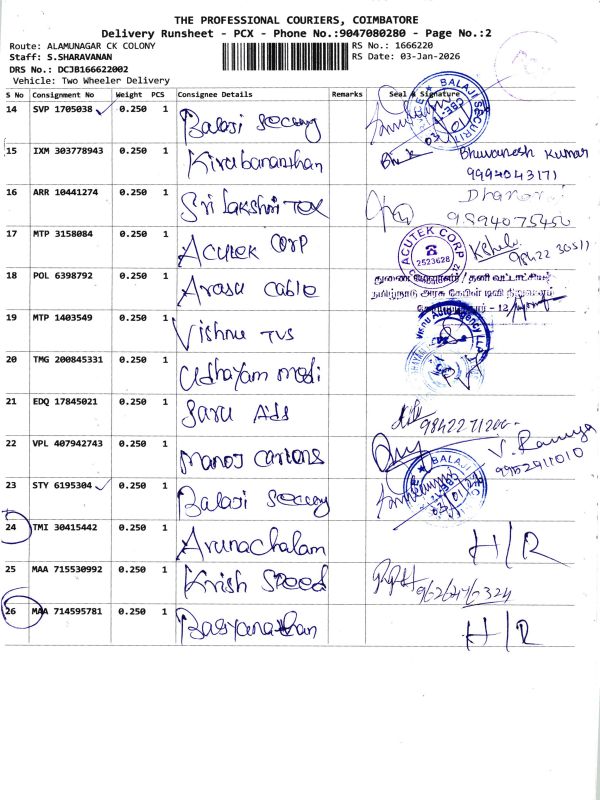 THE PROFESSIONAL COURIERS, COIMBATORE
Delivery Runsheet - PCX - Phone No.:9047080280 - Page No.:2
Route: ALAMUNAGAR CK COLONY RS No.: 1666220
Staff: S.SHARAVANAN RS Date: 03-Jan-2026
DRS No.: DCJB166622002
Vehicle: Two Wheeler Delivery
S No Consignment No Weight PCS Consignee Details Remarks Seal & Signature
14 SVP 1705038 0.250 1 Balaji Secury
BALAJI SECURIT
15 IXM 303778943 0.250 1 Kirubananthan Bhuvanesh Kumar
9994043171
16 ARR 10441274 0.250 1 Sri Lakshmi Tex
9894075450
17 MTP 3158084 0.250 1 Acutek Corp ACUTEK CORP
2523628
18 POL 6398792 0.250 1 Arasu Cable துணை மேலாளர் / தனி வட்டாட்சியர்
தமிழ்நாடு அரசு கேபிள் டிவி நிறுவனம்
- 12
19 MTP 1403549 0.250 1 Vishnu TVS
20 TMG 200845331 0.250 1 Udhayam modi
21 EDQ 17845021 0.250 1 Saru Ads
22 VPL 407942743 0.250 1 Manoj Cartons V. Ramya
9952911010
23 STY 6195304 0.250 1 Balaji Secury BALAJI
24 TMI 30415442 0.250 1 Arunachalam H/R
25 MAA 715530992 0.250 1 Krish Speed
26 MAA 714595781 0.250 1 H/R